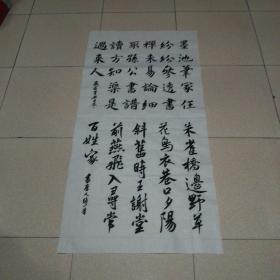 墨池筆冢任
紛紛參透書
禪未易論細
取孫公書譜
讀方知渠是
過來人
朱雀橋邊野草
花烏衣巷口夕陽
斜舊時王謝堂
前燕飛入尋常
百姓家